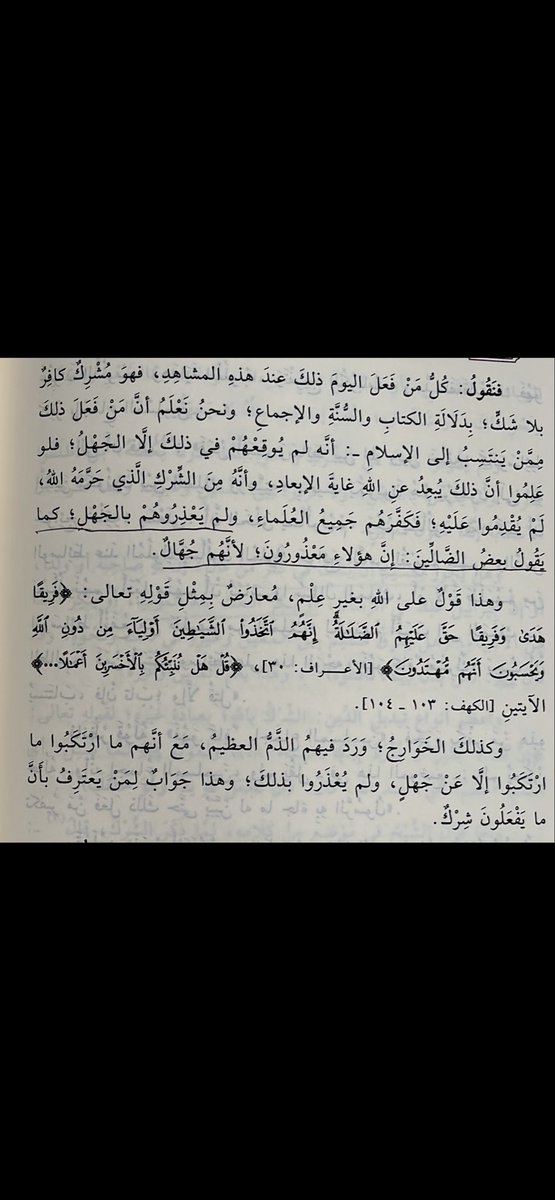 فنَقُولُ: كُلُّ مَنْ فَعَلَ اليومَ ذلكَ عندَ هذهِ المشاهِدِ، فهوَ مُشْرِكٌ كافِرٌ
بلا شَكٍّ؛ بِدَلَالَةِ الكتابِ والسُّنَّةِ والإجماعِ؛ ونحنُ نَعْلَمُ أنَّ مَنْ فَعَلَ ذلكَ
مِمَّنْ يَنتَسِبُ إلى الإسلامِ ـ: أنَّه لم يُوقِعْهُمْ في ذلكَ إلَّا الجَهْلُ؛ فلو
عَلِمُوا أنَّ ذلكَ يُبعِدُ عنِ اللهِ غايةَ الإبعادِ، وأنَّهُ مِنَ الشِّرْكِ الَّذي حَرَّمَهُ اللهُ،
لَمْ يُقْدِمُوا عَلَيْهِ؛ فكَفَّرَهُم جَمِيعُ العُلَماءِ، ولم يَعْذِرُوهُمْ بالجَهْلِ؛ كما
يَقُولُ بعضُ الضَّالِّينَ: إنَّ هؤلاءِ مَعْذُورُونَ؛ لأنَّهُم جُهَّالٌ.
وهذا قَوْلٌ على اللهِ بغيرِ عِلْمٍ، مُعارَضٌ بِمِثْلِ قَوْلِهِ تعالى: ﴿فَرِيقًا
هَدَىٰ وَفَرِيقًا حَقَّ عَلَيْهِمُ ٱلضَّلَـٰلَةُ إِنَّهُمُ ٱتَّخَذُوا۟ ٱلشَّيَـٰطِينَ أَوْلِيَآءَ مِن دُونِ ٱللَّهِ
وَيَحْسَبُونَ أَنَّهُم مُّهْتَدُونَ﴾ [الأعراف: ٣٠]، ﴿قُلْ هَلْ نُنَبِّئُكُم بِٱلْأَخْسَرِينَ أَعْمَـٰلًا...﴾
الآيتينِ [الكهف: ١٠٣ ـ ١٠٤].
وكذلكَ الخَوارِجُ؛ وَرَدَ فيهِمُ الذَّمُّ العظيمُ، مَعَ أنَّهم ما ارْتَكَبُوا ما
ارْتَكَبُوا إلَّا عَنْ جَهْلٍ، ولم يُعْذَرُوا بذلكَ؛ وهذا جَوَابٌ لِمَنْ يَعتَرِفُ بأَنَّ
ما يَفْعَلُونَ شِرْكٌ.